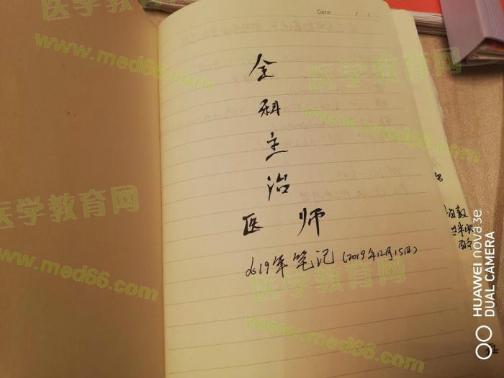 Date
全
科
主
治
医 师
2019年笔记(2019年12月15日)
医学教育网
www.med66.com
医学教育网
www.med66.com
医学教育网
www.med66.com
医学教育网
www.med66.com
HUAWEI nova 3e
DUAL CAMERA